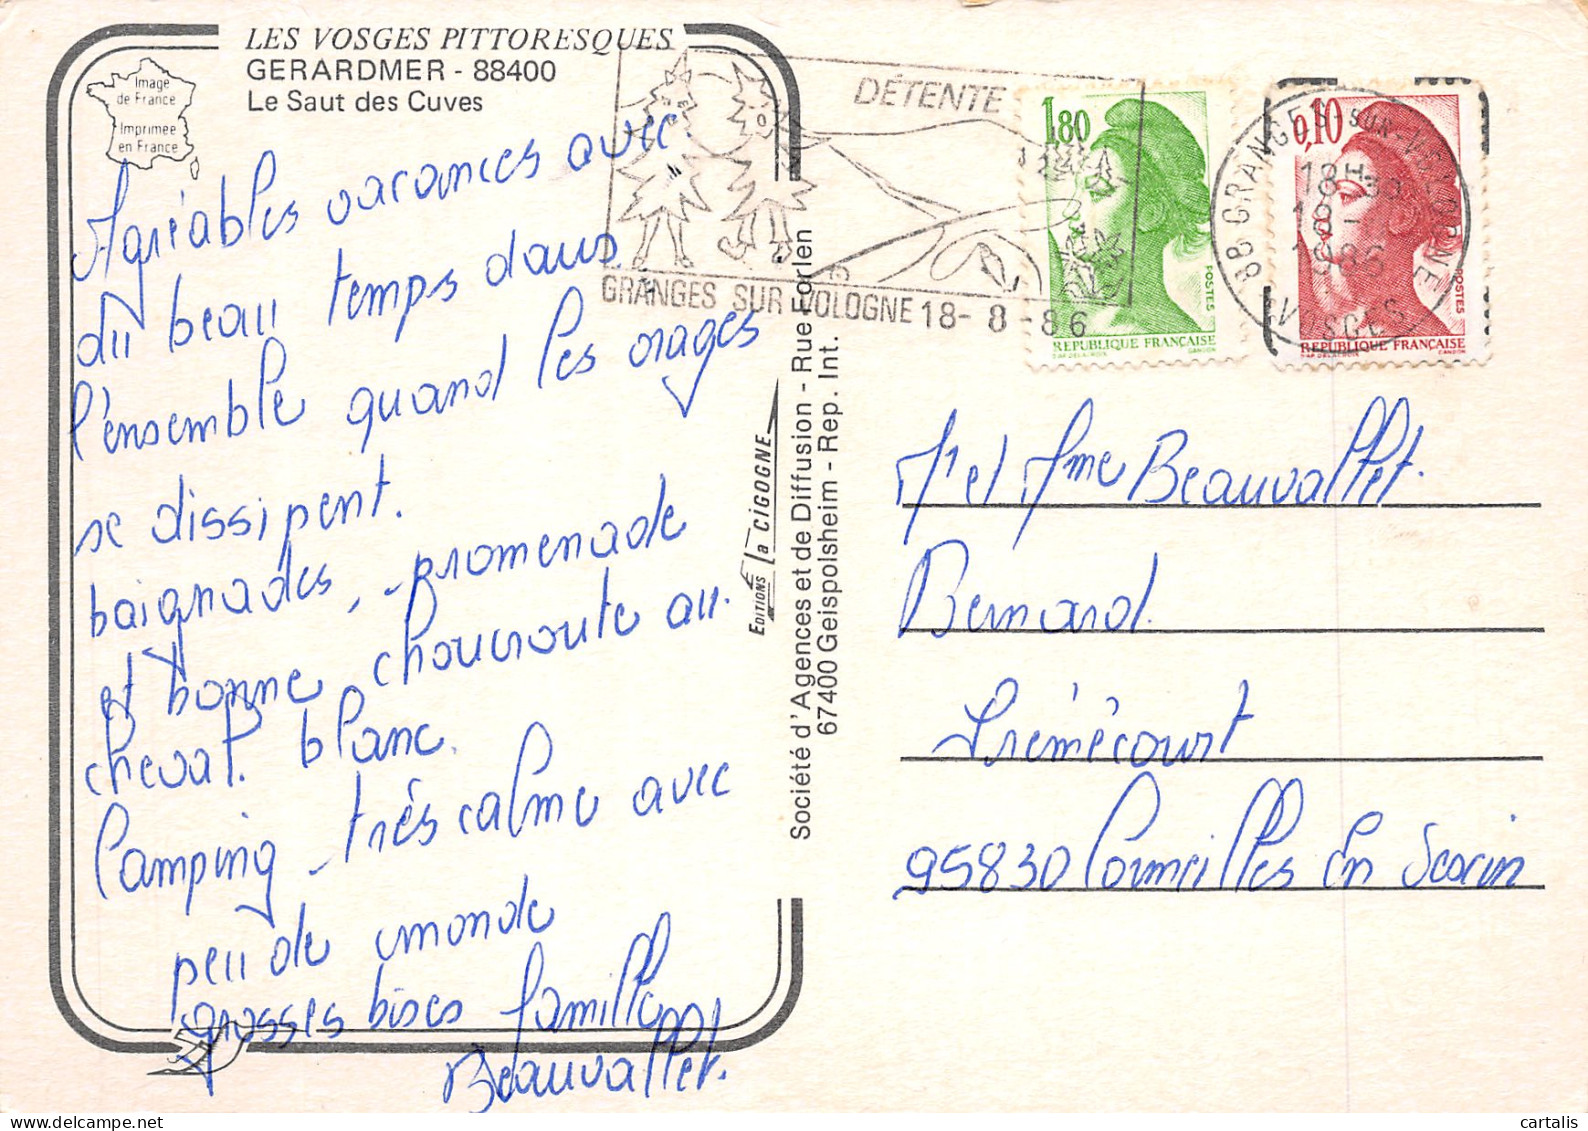 LES VOSGES PITTORESQUES
GERARDMER - 88400
Le Saut des Cuves
Image
de France
Imprimée
en France
Agréables vacances avec
du beau temps dans
l'ensemble quand les orages
se dissipent.
baignades, promenade
et bonne choucroute au
cheval blanc.
Camping très calme avec
peu de monde
grosses bises famille
Beauvallet.
EDITIONS la CIGOGNE
Société d'Agences et de Diffusion - Rue Forlen
67400 Geispolsheim - Rep. Int.
DÉTENTE
GRANGES SUR VOLOGNE 18-8-86
1,80
POSTES
REPUBLIQUE FRANÇAISE
D'AP. DELACROIX GANDON
0,10
POSTES
REPUBLIQUE FRANÇAISE
D'AP. DELACROIX GANDON
88 GRANGES-SUR-VOLOGNE
18H
18-
1986
VOSGES
Mr et Mme Beauvallet.
Bernard.
Frémécourt
95830 Cormeilles En Vexin
cartalis